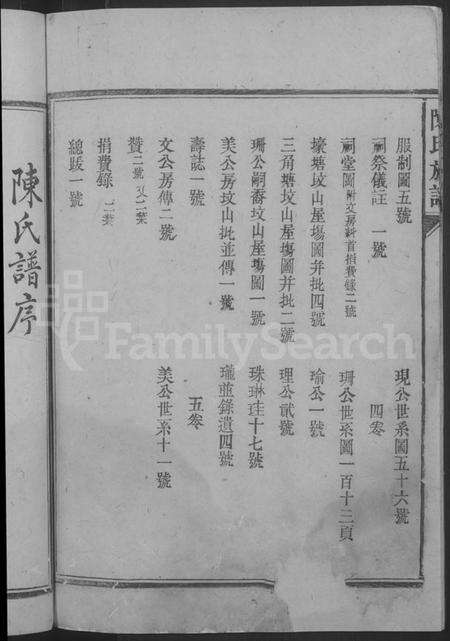 陳氏族譜
服制圖五號
祠祭儀註 一號
祠堂圖附文房新首捐費錄二號
壕塘坟山屋塲圖并批四號
三角塘坟山屋塲圖并批二號
珊公嗣喬坟山屋塲圖一號
美公房坟山批並傳一號
壽誌一號
文公房傳二號
贊二號 又二葉
捐費錄 二葉
總跋一號
現公世系圖五十六號
四卷
珊公世系圖一百十三頁
瑜公一號
理公貳號
珠琳珪十七號
瓏並錄遺四號
五卷
美公世系十一號
陳氏譜序
FamilySearch